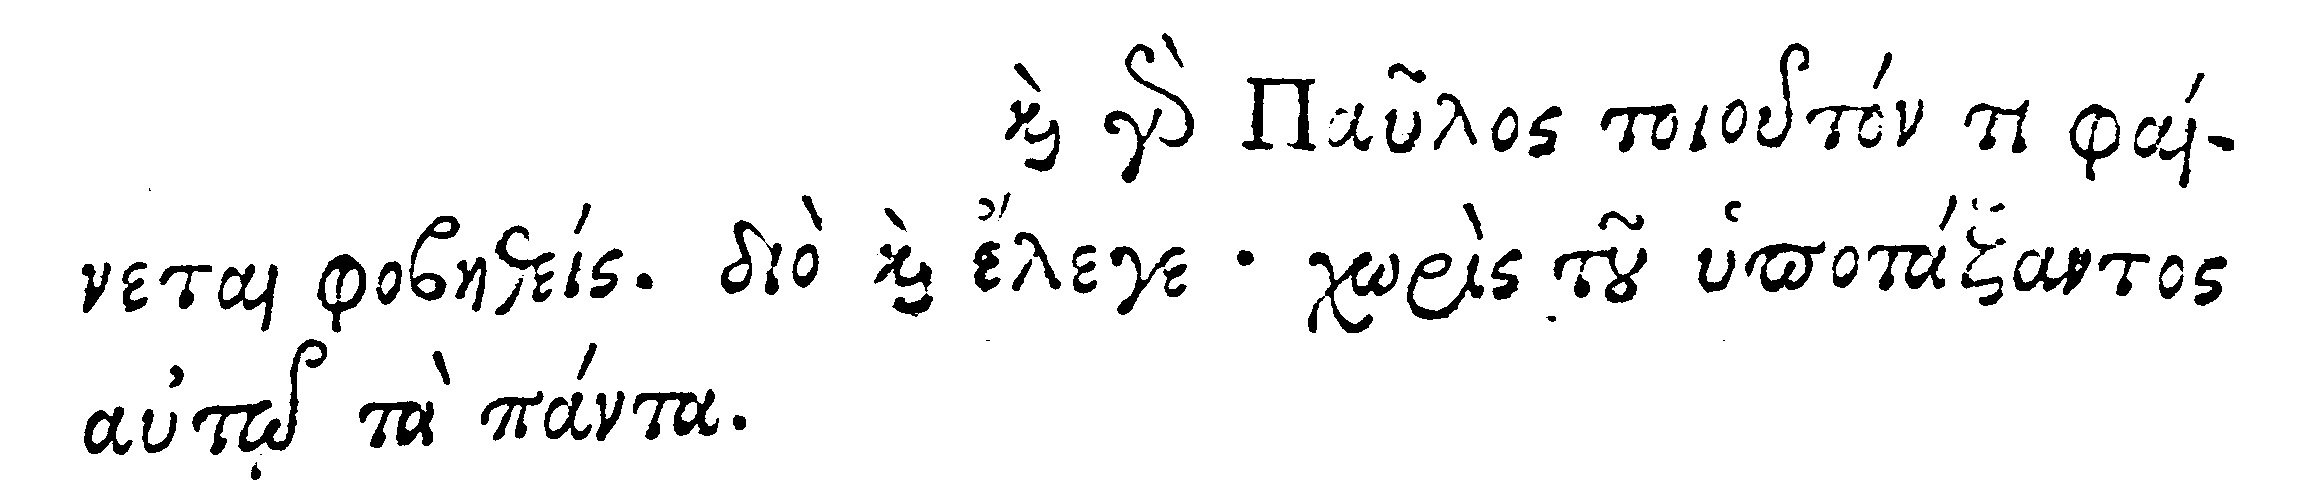 καὶ γὰρ Παῦλος τοιοῦτόν τι φαί-
νεται φοβηθείς. διὸ καὶ ἔλεγε · χωρὶς τοῦ ὑποτάξαντος
αὐτῷ τὰ πάντα.